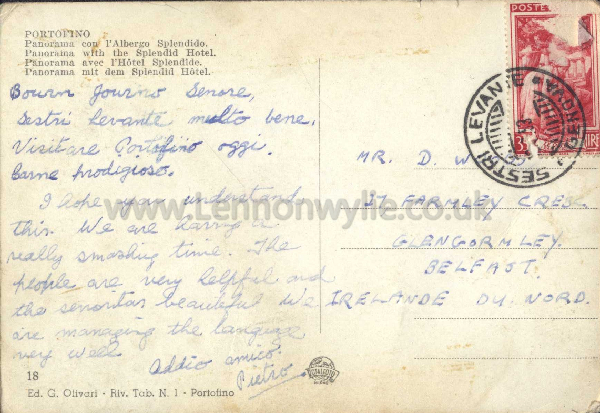 PORTOFINO
Panorama con l'Albergo Splendido.
Panorama with the Splendid Hotel.
Panorama avec l'Hôtel Splendide.
Panorama mit dem Splendid Hôtel.
Bourn Journo Senore,
Sestri Levante multo bene.
Visitare Portofino oggi.
prodigioso.
I hope you understand
this. We are having a
really smashing time. The
people are very helpful and
the senoritas beautiful We
are managing the language
very well.
Addio amico.
Pietro.
18
Ed. G. Olivari - Riv. Tab. N. 1 - Portofino
POSTE
LIRE
SESTRI LEVANTE
GENOVA
MR. D.
FARMLEY CRES.
GLENGORMLEY.
BELFAST.
IRELANDE DU NORD.
www.Lennonwylie.co.uk